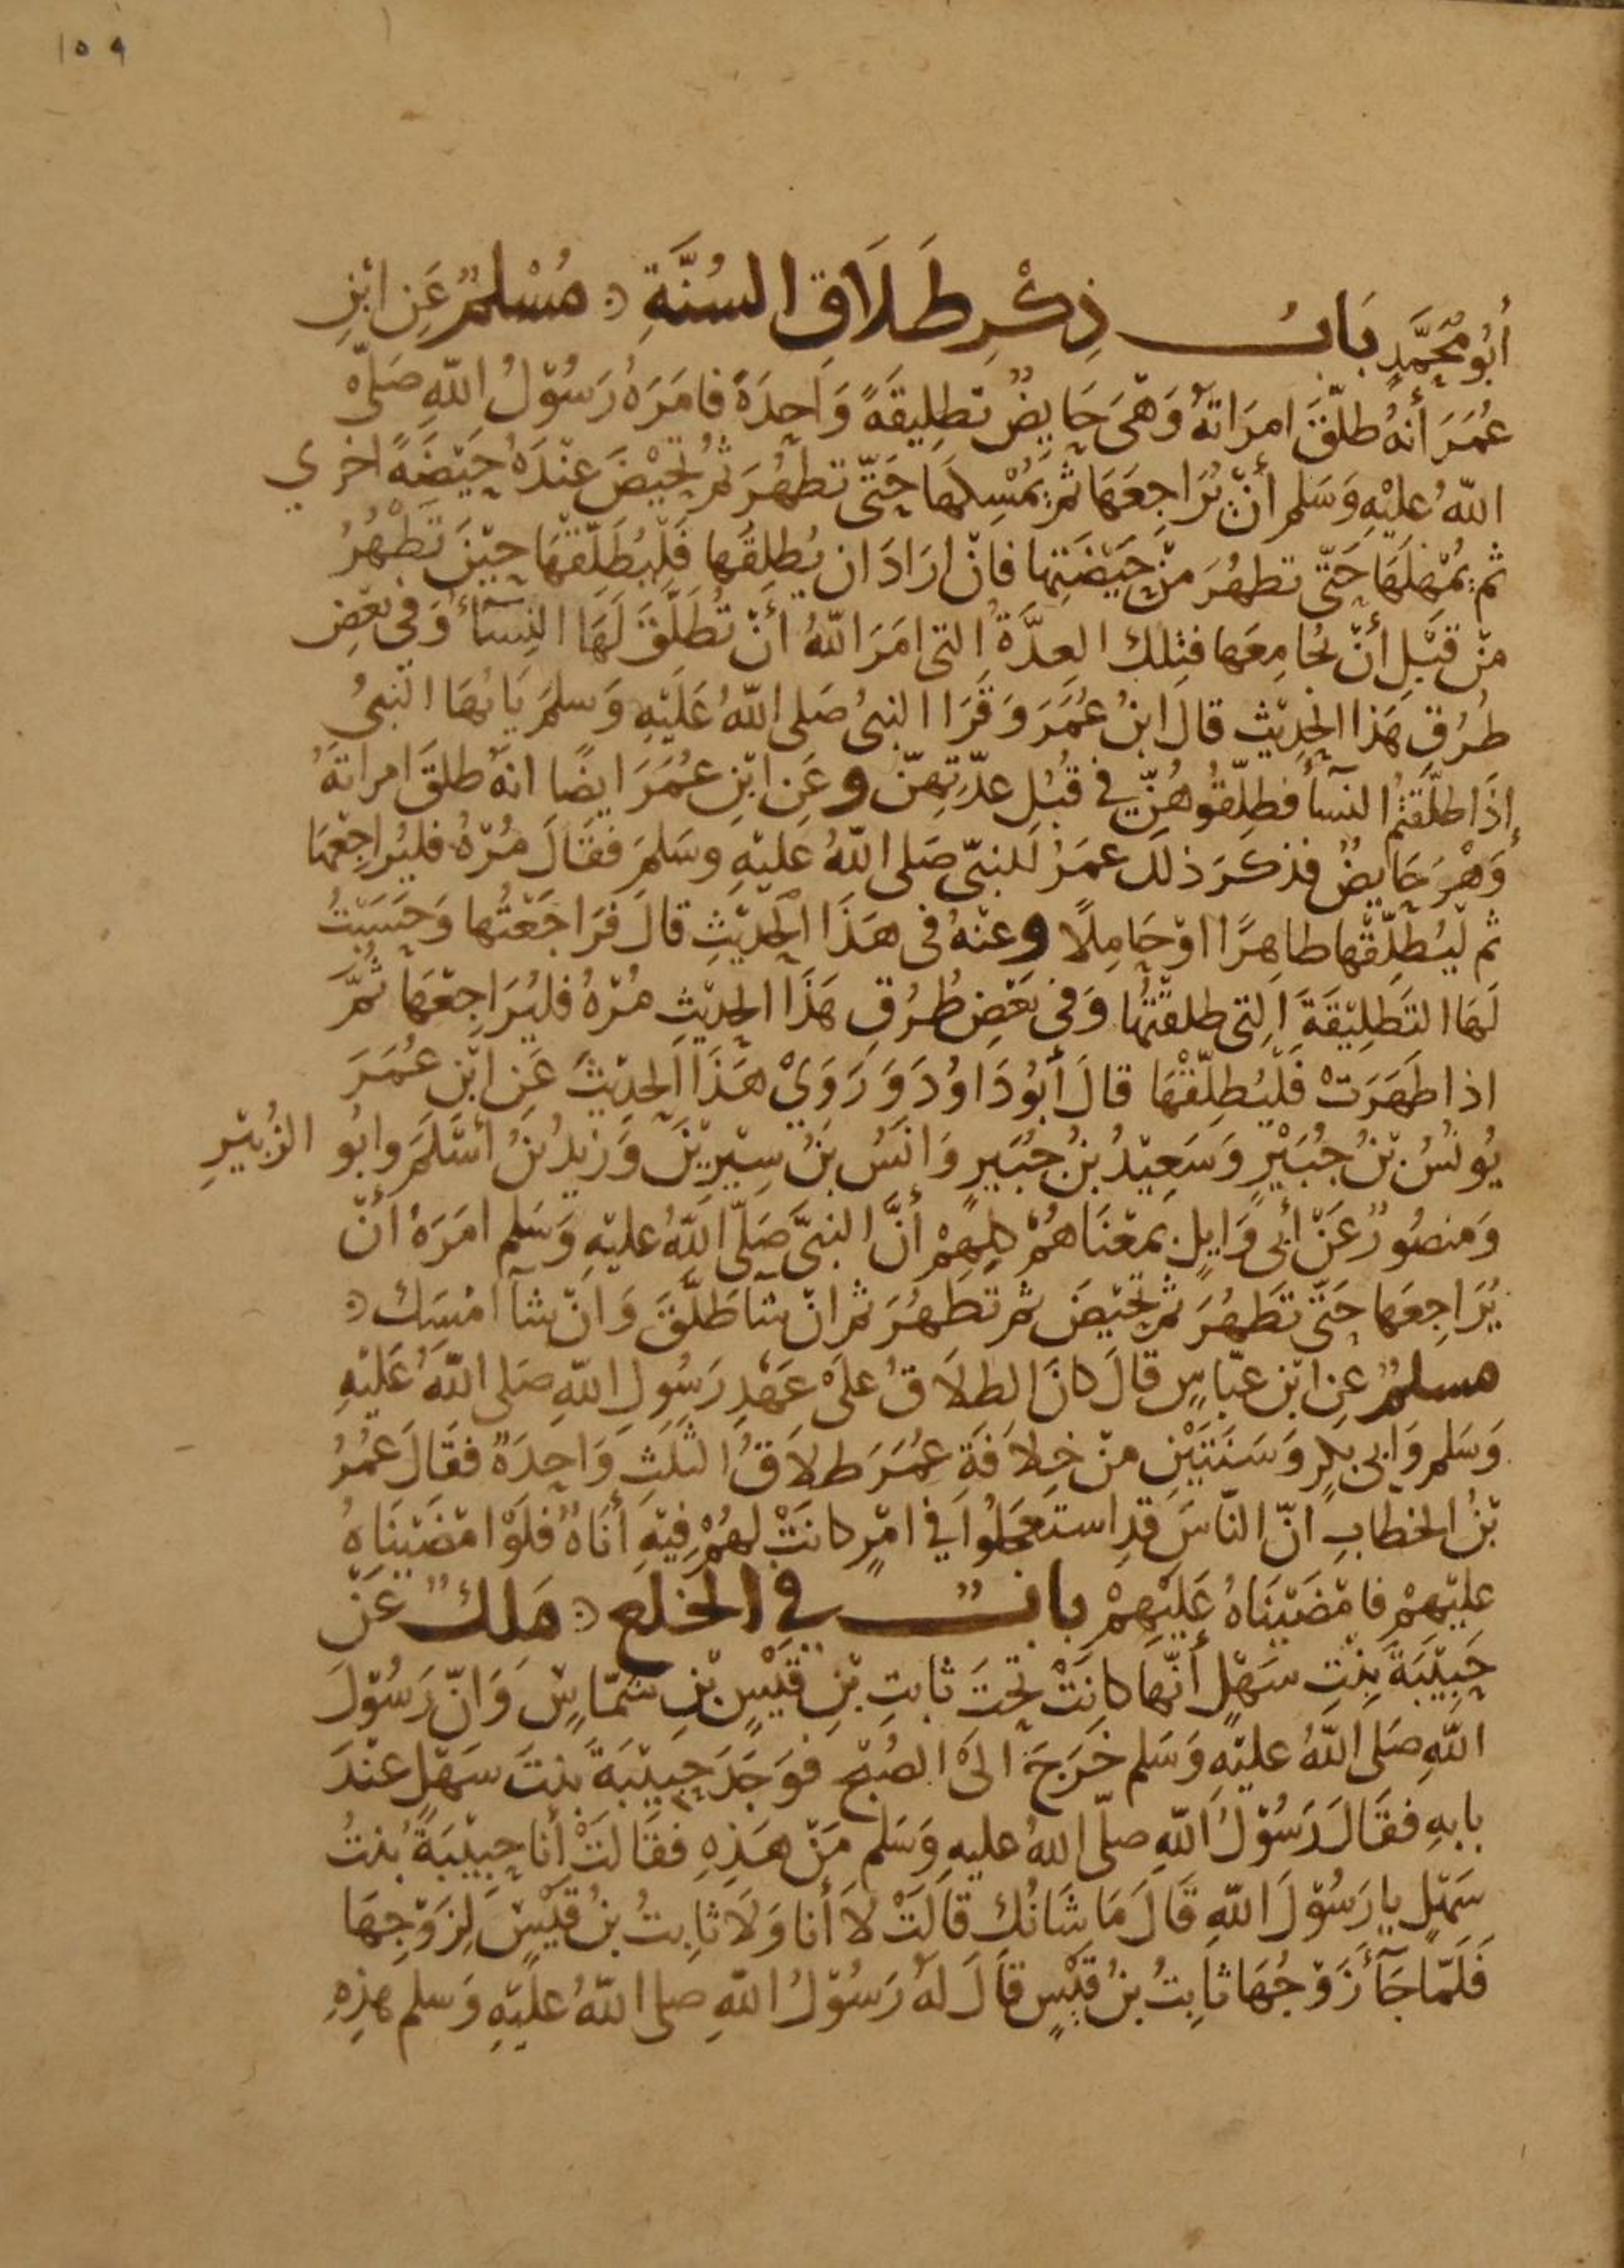 ١٥٩
أَبُو مُحَمَّدٍ بَابُ ذِكْرِ طَلَاقِ السُنَّةِ مُسْلِمٌ عَنِ ابْنِ
عُمَرَ أَنهُ طلّقَ امرَاتهُ وَهْىَ حَايِضٌ تطلِيقَةً وَاحِدَةً فامَرَهُ رَسُوْلُ اللّهِ صَلّى
اللّهُ عليْهِ وَسَلم أنْ يُرَاجِعَهَا ثمّ يُمْسِكهَا حَتّى تطهُرَ ثمّ تحِيْضَ عنْدَهُ حَيْضَةً اخري
ثم يُمْهِلَهَا حَتّى تطهُرَ منْ حَيْضَتِها فانْ ارَادَ ان يُطلِقَها فَلْيُطَلّقْهَا حِيْنَ تَطْهُرُ
منْ قبْلِ أنْ يُجامِعَها فتِلك العِدَّةُ التى امَرَ اللّهُ أنْ تُطَلَّقَ لَهَا النِسَآءُ وَفى بعْضِ
طُرُقِ هَذا الحِدِيْثِ قالَ ابنُ عُمَرَ وَقَرَا النبىُ صَلى اللّهُ عَليْهِ وَسلمَ يَايُهَا النّبىُ
إذَا طلّقتُمُ النسآءَ فطلِّقُوهُنّ فى قُبُلِ عدّتِهِنّ وعَنِ ابْنِ عُمَرَ ايضًا انهُ طلقَ امراتَهُ
وَهْىَ حَايِضٌ فذكَرَ ذلكَ عمَرُ للنبىّ صَلى اللّهُ عَليْهِ وسَلمَ فقَالَ مُرْهُ فليُراجِعْهَا
ثم ليُطلِّقْها طاهِرًا اوْ حَامِلًا وعنْهُ فى هَذَا الحَدِيْثِ قالَ فرَاجَعْتُها وَحَسَبْتُ
لَهَا التَطلِيْقَةَ التِى طلقْتُهَا وَفى بَعْضِ طُرُقِ هَذَا الحِدِيْثِ مُرْهُ فليُرَاجِعْهَا ثُمَّ
اذا طَهَرَتْ فَلْيُطلّقْهَا قالَ أبُو دَاوُدَ وَرَوَىْ هَذَا الحدِيْثَ عَنِ ابْنِ عُمَرَ
يُونُسُ بْنُ جُبَيْرٍ وَسَعِيْدُ بنُ جُبَيرٍ وَانَسُ بنُ سِيْرِيْنَ وَزيدُ بنُ أسْلَمَ وابُو الزُبيْرِ
وَمَنصُورٌ عَنْ أبى وَايِلٍ بمعْنَاهُمْ كلِهِمْ أنَّ النبىَّ صَلّى اللّهُ عليْهِ وَسَلم امَرَهُ أنْ
يُرَاجِعَها حَتّى تَطهُرَ ثمّ تحِيْضَ ثم تطهُرَ ثمّ انْ شا طَلّقَ وَانْ شآ امْسَك
مسلمٌ عنِ ابْنِ عبّاسٍ قالَ كانَ الطلاَقُ علىْ عَهْدِ رَسُولِ اللّهِ صَلى اللّهُ عَليْهِ
وَسَلم وَابى بكرٍ وَسَنتَيْنِ منْ خِلاَفَةِ عُمَرَ طلاَقُ الثّلَثِ وَاحِدَةً فقَالَ عُمَرُ
بْنُ الخطابِ انّ النّاسَ قدِ استعجَلُوا فى امْرٍ كانَتْ لهُمْ فِيْهِ أنَاةٌ فلوْ امْضَيْنَاهُ
عليْهِمْ فامْضَيْنَاهُ عَليْهِمْ بابٌ فى الخلع مَلك عَنْ
حَبِيْبَةَ بِنْتِ سَهْلٍ أنّهَا كانَتْ تحْتَ ثابتِ بْنِ قَيْسٍ بْنِ شمّاسٍ وَانّ رَسُوْلَ
اللّهِ صَلى اللّهُ عليْهِ وَسَلم خَرَجَ الىْ الصُبْحِ فوَجَدَ حَبِيْبَةَ بنتَ سَهْلٍ عنْدَ
بابهِ فقَالَ رَسُوْلُ اللّهِ صلّى اللهُ عليهِ وَسَلم مَنْ هَذِهِ فقَالَتْ أنا حَبِيْبَةُ بنتُ
سَهْلٍ يا رَسُوْلَ اللّهِ قَالَ مَا شَانُك قَالَتْ لاَ أنا وَلاَ ثابِتُ بنُ قَيْسٍ لِزَوْجِهَا
فَلَمّا جَآءَ زَوْجُهَا ثابِتُ بنُ قَيْسٍ قَالَ لَهُ رَسُوْلُ اللّهِ صلى اللّهُ عليْهِ وَسلم هذِهِ